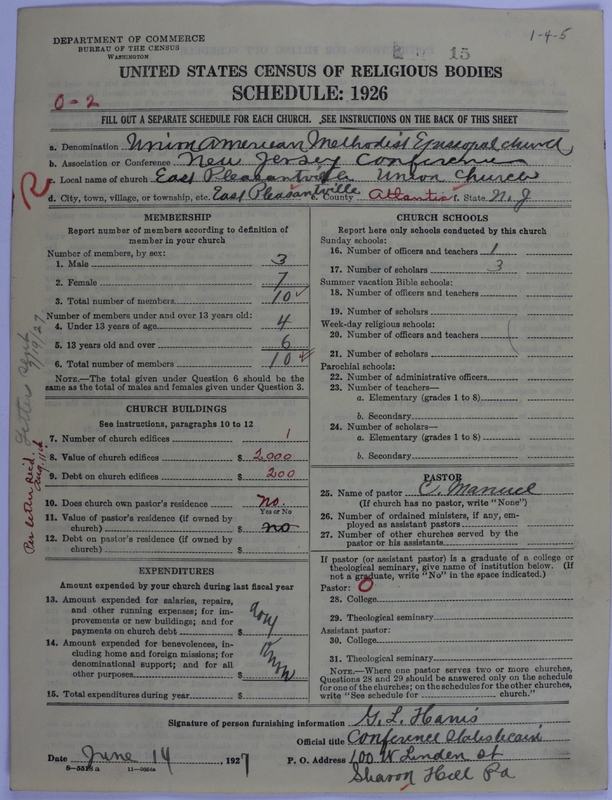 1-4-5
DEPARTMENT OF COMMERCE
BUREAU OF THE CENSUS
WASHINGTON
15
UNITED STATES CENSUS OF RELIGIOUS BODIES
SCHEDULE: 1926
0-2
FILL OUT A SEPARATE SCHEDULE FOR EACH CHURCH. SEE INSTRUCTIONS ON THE BACK OF THIS SHEET
a. Denomination Union American Methodist Episcopal church
b. Association or Conference New Jersey Conference
c. Local name of church East Pleasantville Union Church
R
d. City, town, village, or township, etc. East Pleasantville e. County Atlantic f. State N. J
MEMBERSHIP
Report number of members according to definition of
member in your church
Number of members, by sex:
1. Male 3
2. Female 7
3. Total number of members 10 ✓
Number of members under and over 13 years old:
4. Under 13 years of age 4
5. 13 years old and over 6
6. Total number of members 10 ✓
NOTE.—The total given under Question 6 should be
same as the total of males and females given under Question 3.
CHURCH BUILDINGS
See instructions, paragraphs 10 to 12
7. Number of church edifices 1
8. Value of church edifices $ 2,000
9. Debt on church edifices $ 200
10. Does church own pastor's residence no.
Yes or No
11. Value of pastor's residence (if owned by
church) $ no
12. Debt on pastor's residence (if owned by
church) $
EXPENDITURES
Amount expended by your church during last fiscal year
13. Amount expended for salaries, repairs,
and other running expenses; for im-
provements or new buildings; and for
payments on church debt $
14. Amount expended for benevolences, in-
cluding home and foreign missions; for
denominational support; and for all
other purposes $
15. Total expenditures during year $
Per letter Rec'd.
Aug. 11th
Letter
7/19/27
CHURCH SCHOOLS
Report here only schools conducted by this church
Sunday schools:
16. Number of officers and teachers 1
17. Number of scholars 3
Summer vacation Bible schools:
18. Number of officers and teachers
19. Number of scholars
Week-day religious schools:
20. Number of officers and teachers
21. Number of scholars
Parochial schools:
22. Number of administrative officers
23. Number of teachers—
a. Elementary (grades 1 to 8)
b. Secondary
24. Number of scholars—
a. Elementary (grades 1 to 8)
b. Secondary
PASTOR
25. Name of pastor C. Manuel
(If church has no pastor, write "None")
26. Number of ordained ministers, if any, em-
ployed as assistant pastors
27. Number of other churches served by the
pastor or his assistants
If pastor (or assistant pastor) is a graduate of a college or
theological seminary, give name of institution below. (If
not a graduate, write "No" in the space indicated.)
Pastor: 0
28. College
29. Theological seminary
Assistant pastor:
30. College
31. Theological seminary
NOTE.—Where one pastor serves two or more churches,
Questions 28 and 29 should be answered only on the schedule
for one of the churches; on the schedules for the other churches,
write "See schedule for church."
Signature of person furnishing information G. L. Harris
Official title Conference
Date June 14, 1927 P. O. Address 100 W Linden st
8—5518a 11—9084a Sharon Hill Pa